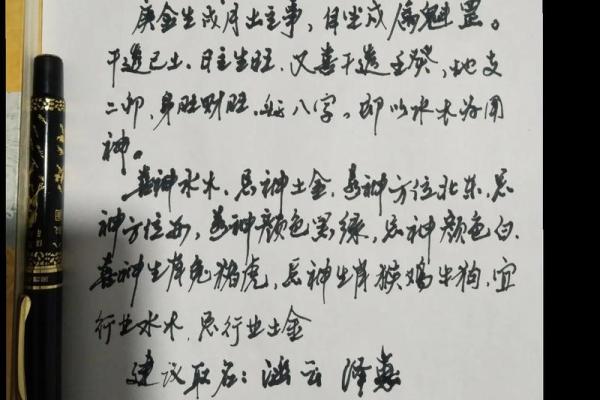 庚金生戌月土主事，自坐戌属魁罡。
干透己土，日主生旺，又喜干透壬癸，地支
二卯，身旺财旺，好八字。即以水木为用
神。
喜神水木，忌神土金，喜神方位北东，忌
神方位西，喜神颜色黑绿，忌神颜色白。
喜神生肖兔猪虎，忌神生肖猴鸡牛狗，宜
行业水木，忌行业土金
建议取名：涵云 泽惠